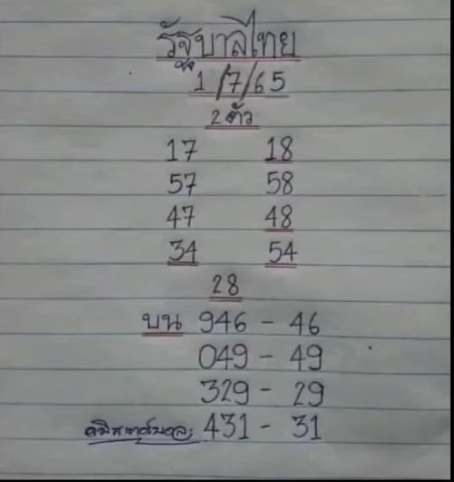 รัฐบาลไทย
1/7/65
2 ตัว
17 18
57 58
47 48
34 54
28
บน 946 - 46
049 - 49
329 - 29
431 - 31